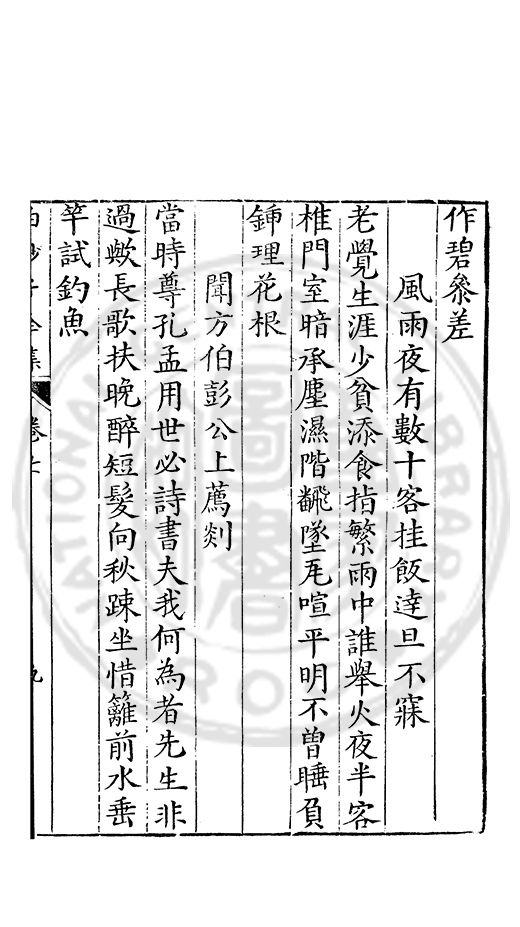 作碧叅差
風雨夜有數十客挂飯達旦不寐
老覺生涯少貧添食指繁雨中誰舉火夜半客
椎門室暗承塵濕階飜墜瓦喧平明不曾睡負
鍤理花根
聞方伯彭公上薦剡
當時尊孔孟用世必詩書夫我何為者先生非
過歟長歌扶晚醉短髮向秋踈坐惜籬前水垂
竿試釣魚
白沙子全集 卷七 九